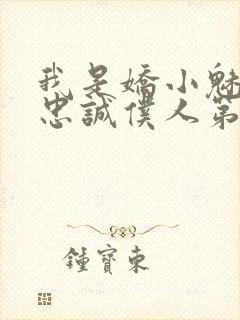 我是嬌小魅
忠誠僕人第
鍾寶東